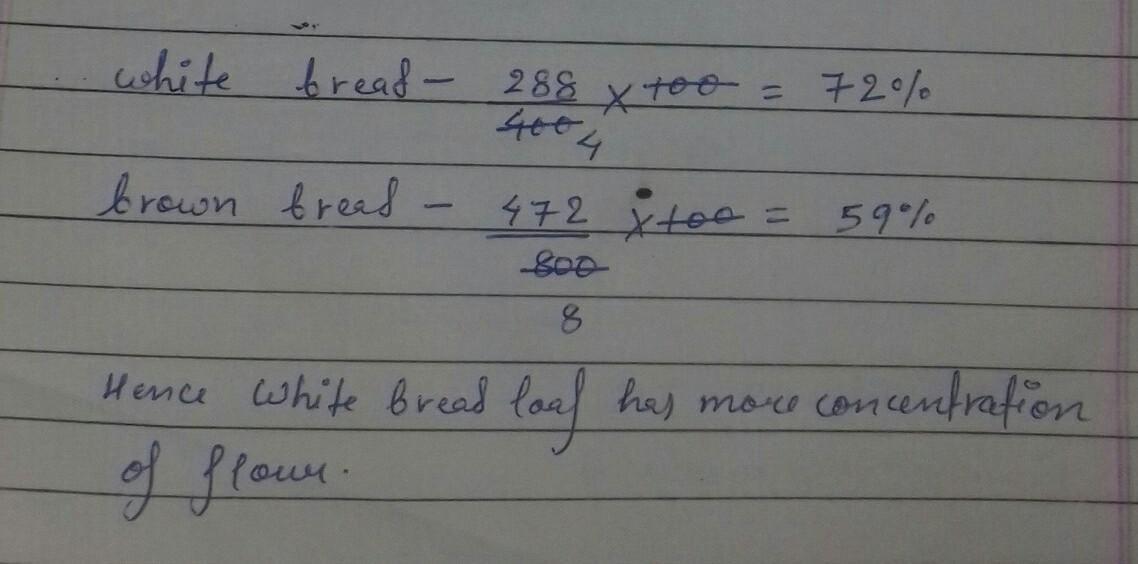 White bread - 288/400 4 × 100 = 72%
brown bread - 472/800 8 × 100 = 59%
Hence White bread loaf has more concentration
of flour.